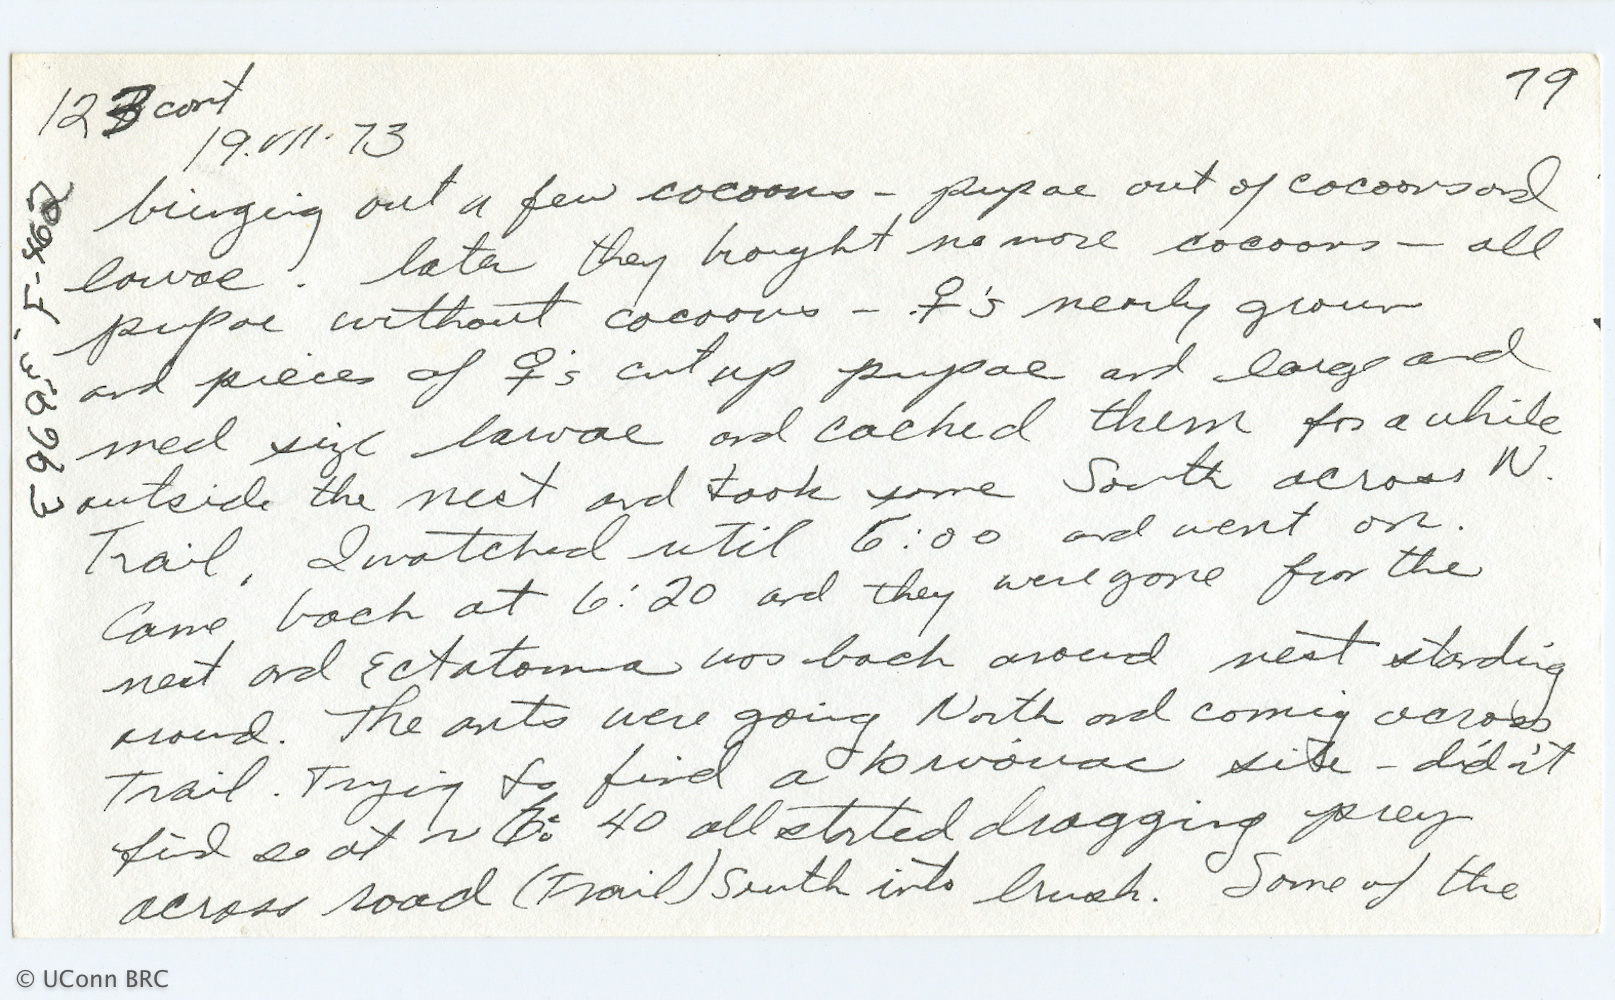 123 cont
79
19.VII.73
bringing out a few cocoons - pupae out of cocoons and
larvae. later they brought no more cocoons - all
pupae without cocoons - ♀'s nearly grown
and pieces of ♀'s cut up pupae and large and
med size larvae and cached them for a while
outside the nest and took some South across N.
Trail. I watched util 6:00 and went on.
Came back at 6:20 and they were gone from the
nest and Ectatomma was back around nest standing
around. The ants were going North and coming across
Trail. Trying to find a bivouac site - didn't
find so at ~ 6:40 all started dragging prey
across road (Trail) South into brush. Some of the
© UConn BRC